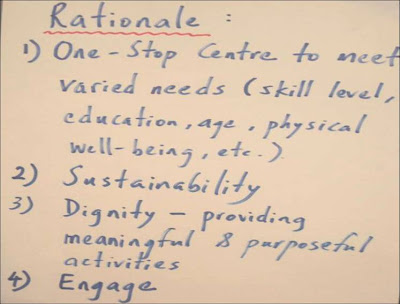 Rationale :
1) One-Stop Centre to meet
varied needs (skill level,
education, age, physical
well-being, etc.)
2) Sustainability
3) Dignity - providing
meaningful & purposeful
activities
4) Engage